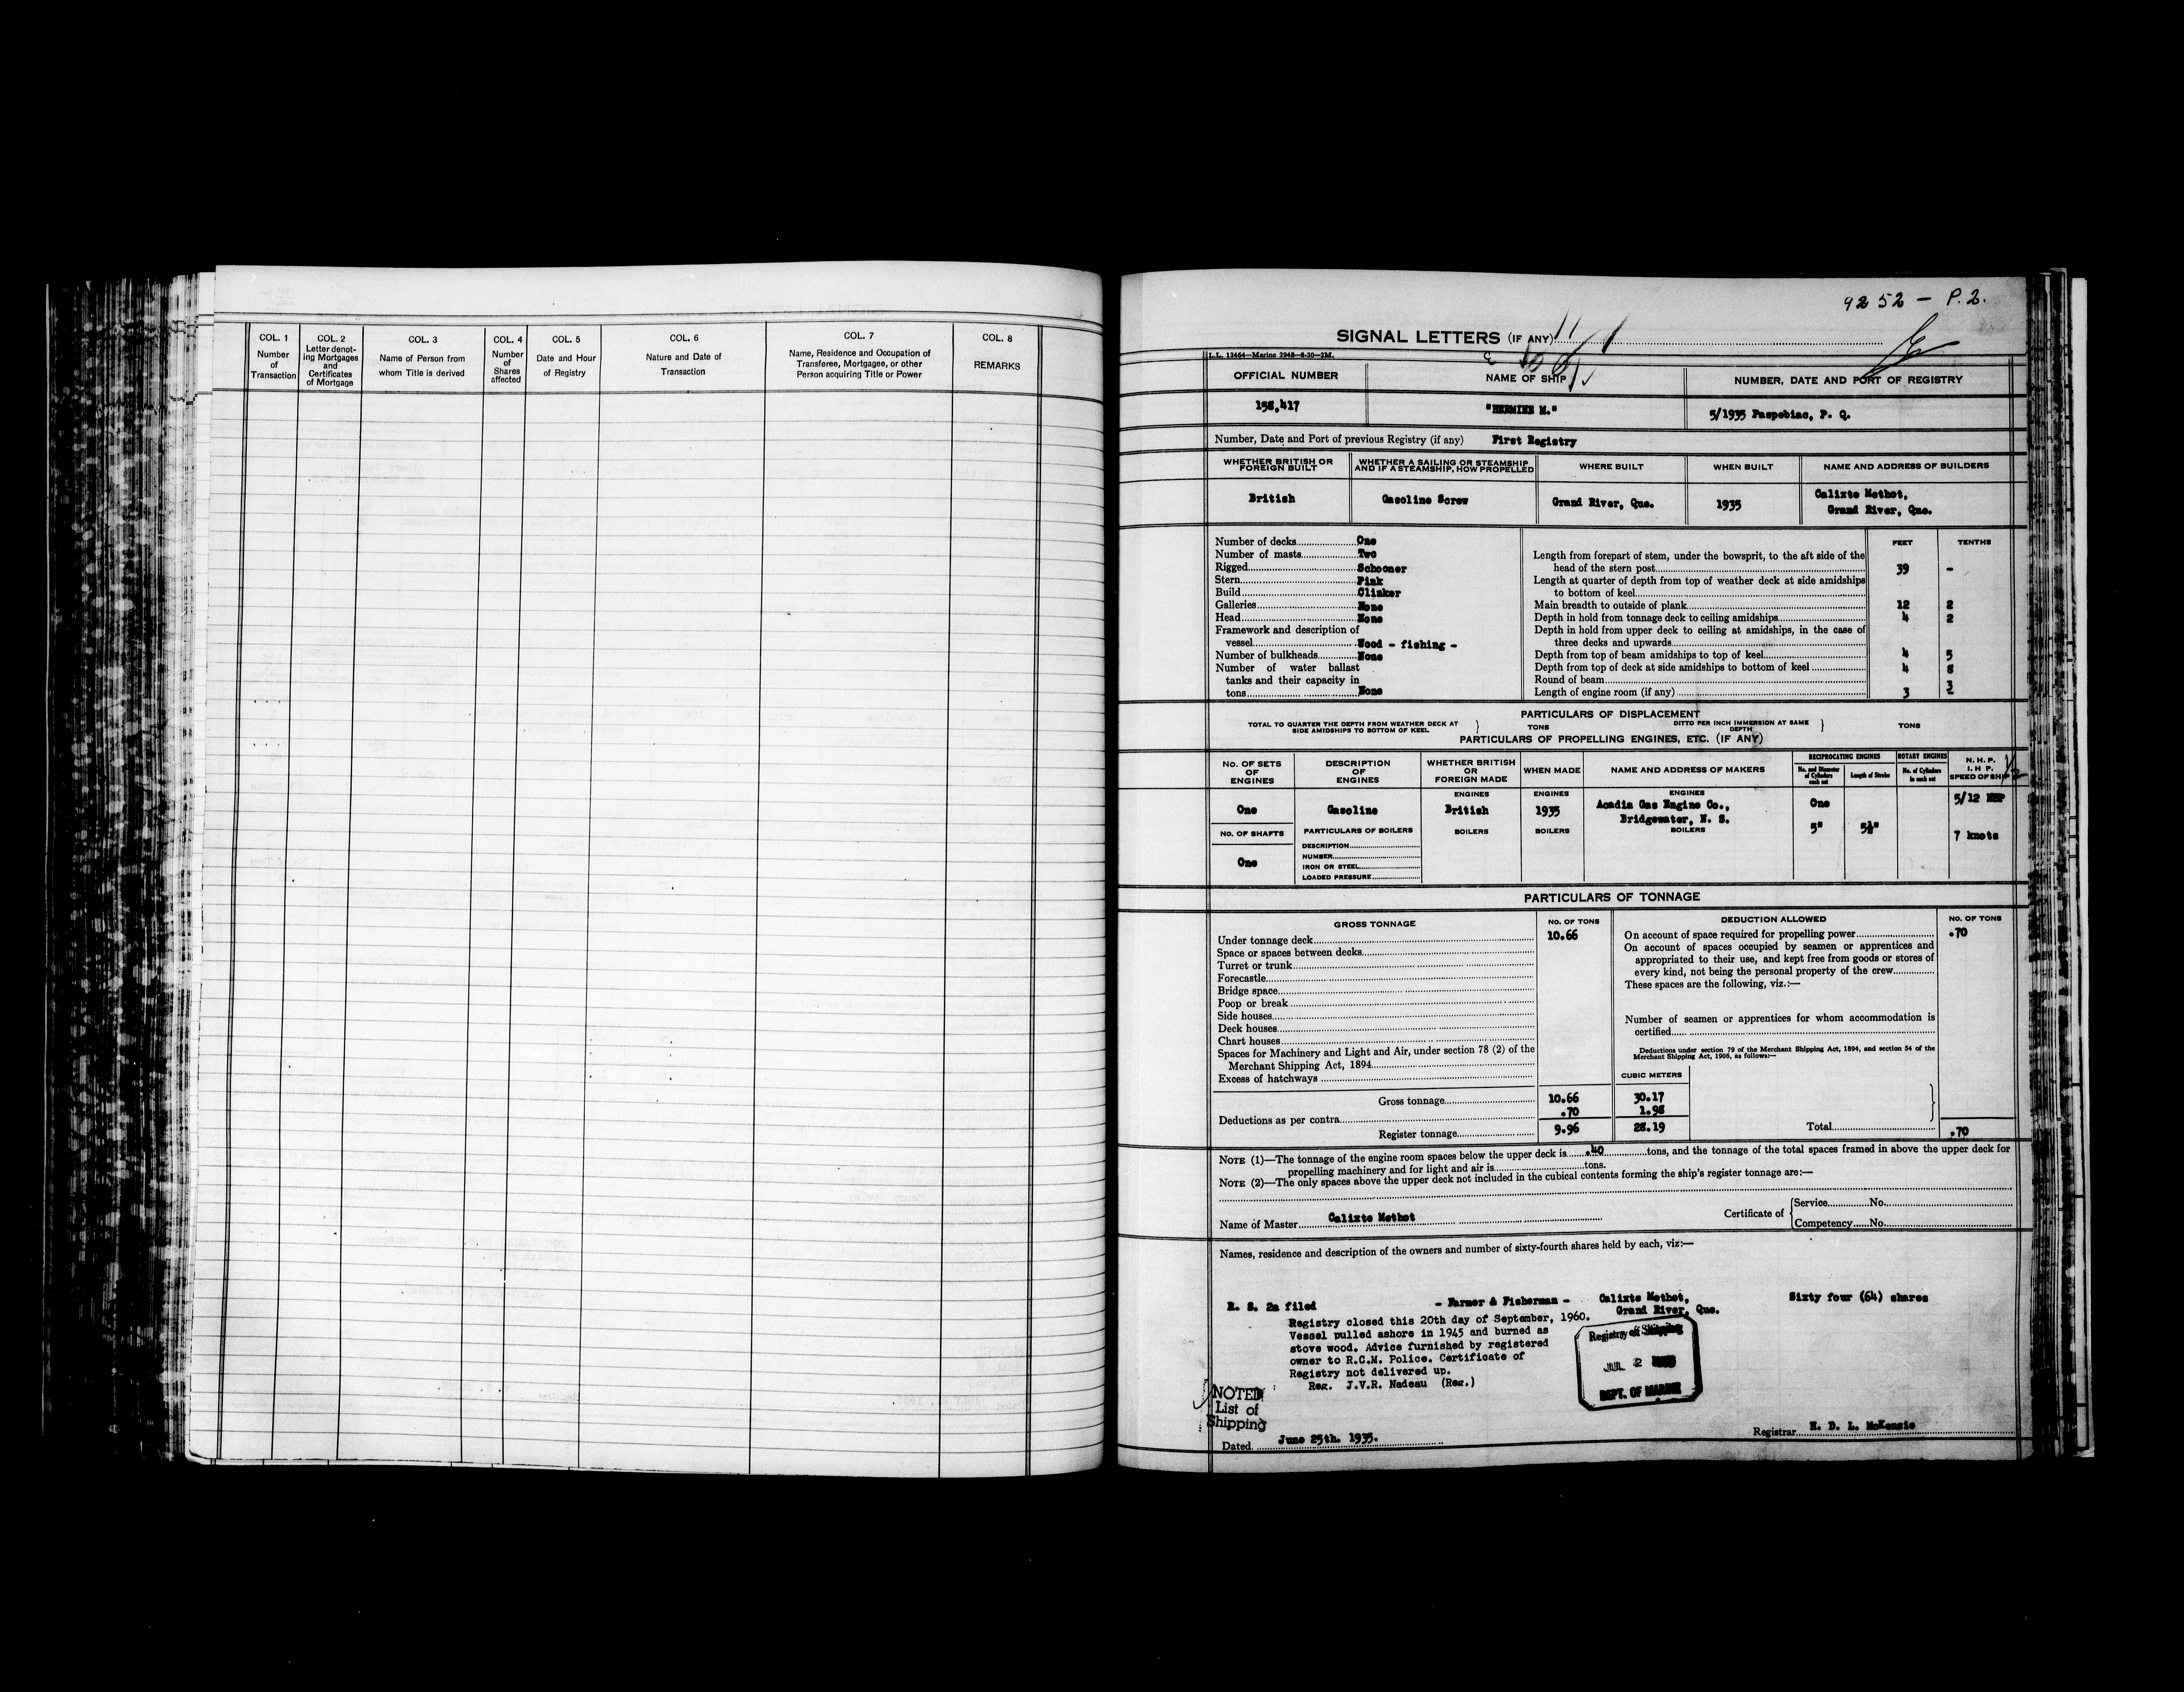 COL. 1
Number
of
Transaction
COL. 2
Letter denot-
ing Mortgages
and
Certificates
of Mortgage
COL. 3
Name of Person from
whom Title is derived
COL. 4
Number
of
Shares
affected
COL. 5
Date and Hour
of Registry
COL. 6
Nature and Date of
Transaction
COL. 7
Name, Residence and Occupation of
Transferee, Mortgagee, or other
Person acquiring Title or Power
COL. 8
REMARKS
9252 — P. 2.
SIGNAL LETTERS (IF ANY)
L.L. 12464—Marine 2948—8-30—2M.
OFFICIAL NUMBER NAME OF SHIP NUMBER, DATE AND PORT OF REGISTRY
158,417 "HERMINE M." 5/1935 Paspebiac, P. Q.
Number, Date and Port of previous Registry (if any) First Registry
WHETHER BRITISH OR
FOREIGN BUILT
WHETHER A SAILING OR STEAMSHIP
AND IF A STEAMSHIP, HOW PROPELLED
WHERE BUILT WHEN BUILT NAME AND ADDRESS OF BUILDERS
British Gasoline Screw Grand River, Que. 1935 Calixte Methot,
Grand River, Que.
Number of decks One
Number of masts Two
Rigged Schooner
Stern Pink
Build Clinker
Galleries None
Head None
Framework and description of
vessel Wood - fishing -
Number of bulkheads None
Number of water ballast
tanks and their capacity in
tons None
FEET TENTHS
Length from forepart of stem, under the bowsprit, to the aft side of the
head of the stern post 39 -
Length at quarter of depth from top of weather deck at side amidships
to bottom of keel
Main breadth to outside of plank 12 2
Depth in hold from tonnage deck to ceiling amidships 4 2
Depth in hold from upper deck to ceiling at amidships, in the case of
three decks and upwards
Depth from top of beam amidships to top of keel 4 5
Depth from top of deck at side amidships to bottom of keel 4 8
Round of beam 3
Length of engine room (if any) 3 2
PARTICULARS OF DISPLACEMENT
TOTAL TO QUARTER THE DEPTH FROM WEATHER DECK AT
SIDE AMIDSHIPS TO BOTTOM OF KEEL
TONS
DITTO PER INCH IMMERSION AT SAME
DEPTH
TONS
PARTICULARS OF PROPELLING ENGINES, ETC. (IF ANY)
No. OF SETS
OF
ENGINES
DESCRIPTION
OF
ENGINES
WHETHER BRITISH
OR
FOREIGN MADE
WHEN MADE
NAME AND ADDRESS OF MAKERS
RECIPROCATING ENGINES
No. and Diameter
of Cylinders
each set
Length of Stroke
ROTARY ENGINES
No. of Cylinders
in each set
N. H. P.
I. H P.
SPEED OF SHIP
ENGINES ENGINES ENGINES
One Gasoline British 1935 Acadia Gas Engine Co., One 5/12
Bridgewater, N. S.
NO. OF SHAFTS PARTICULARS OF BOILERS BOILERS BOILERS BOILERS 5" 5½" 7 knots
One
DESCRIPTION
NUMBER
IRON OR STEEL
LOADED PRESSURE
PARTICULARS OF TONNAGE
GROSS TONNAGE NO. OF TONS
Under tonnage deck 10.66
Space or spaces between decks
Turret or trunk
Forecastle
Bridge space
Poop or break
Side houses
Deck houses
Chart houses
Spaces for Machinery and Light and Air, under section 78 (2) of the
Merchant Shipping Act, 1894
Excess of hatchways
DEDUCTION ALLOWED NO. OF TONS
On account of space required for propelling power .70
On account of spaces occupied by seamen or apprentices and
appropriated to their use, and kept free from goods or stores of
every kind, not being the personal property of the crew
These spaces are the following, viz.:—
Number of seamen or apprentices for whom accommodation is
certified
Deductions under section 79 of the Merchant Shipping Act, 1894, and section 54 of the
Merchant Shipping Act, 1906, as follows:—
CUBIC METERS
Gross tonnage 10.66 30.17
Deductions as per contra .70 1.98
Register tonnage 9.96 28.19 Total .70
NOTE (1)—The tonnage of the engine room spaces below the upper deck is .40 tons, and the tonnage of the total spaces framed in above the upper deck for
propelling machinery and for light and air is tons.
NOTE (2)—The only spaces above the upper deck not included in the cubical contents forming the ship's register tonnage are:—
Name of Master Calixte Methot Certificate of
Service No.
Competency No.
Names, residence and description of the owners and number of sixty-fourth shares held by each, viz:—
R. S. 2a filed - Farmer & Fisherman - Calixte Methot, Sixty four (64) shares
Grand River, Que.
Registry closed this 20th day of September, 1960.
Vessel pulled ashore in 1945 and burned as
stove wood. Advice furnished by registered
owner to R.C.M. Police. Certificate of
Registry not delivered up.
Reg. J.V.R. Nadeau (Reg.)
Registry of Shipping
JUL 2
DEPT. OF MARINE
NOTED
List of
Shipping
Dated June 25th. 1935.
Registrar H. D. L. McKenzie